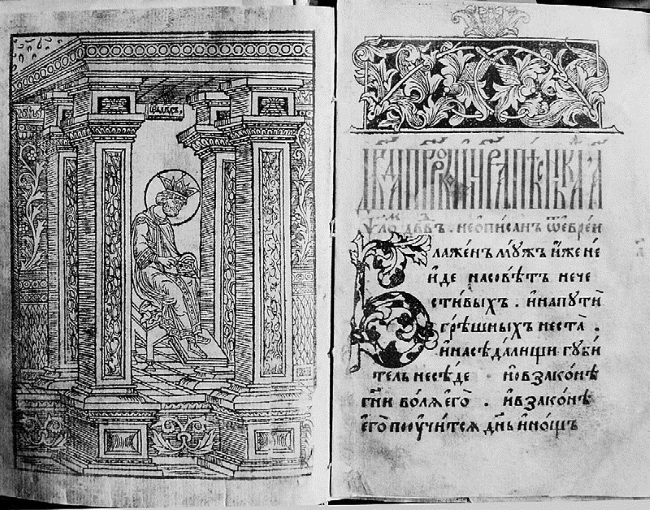 дв҃дъ . неописанъ ѿ евреи
Блаженъ мꙋжъ и҆же не
и҆де на совѣтъ нече
стивыхъ . и҆ на пꙋти
грѣшныхъ не ста .
и҆ на сѣдалищи гꙋби
тель не седе но в законѣ
гн҃и волѧ е҆го . и҆ в законѣ
е҆го поꙋчитсѧ дн҃ь и҆ нощъ